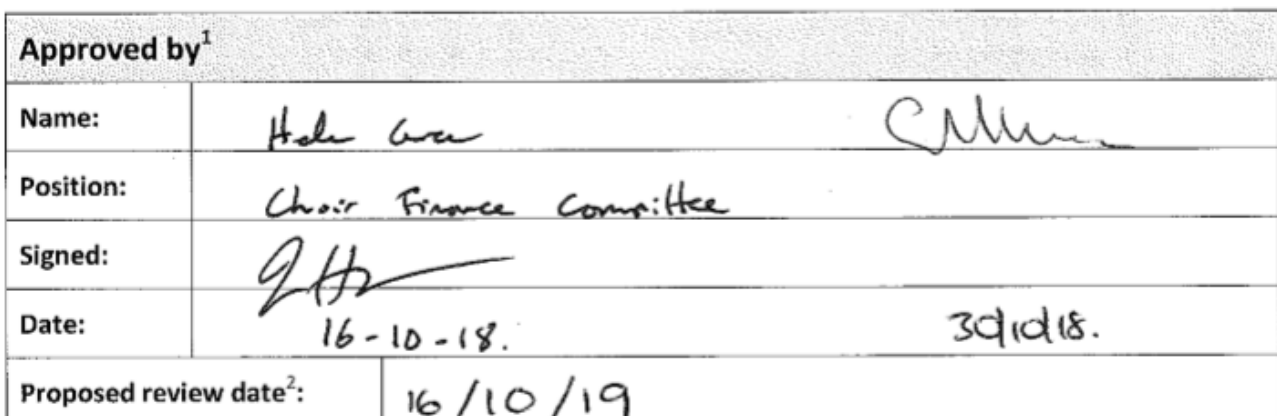 Approved by¹
Name:
Position: Chair Finance Committee
Signed:
Date: 16-10-18. 30/10/18.
Proposed review date²: 16/10/19